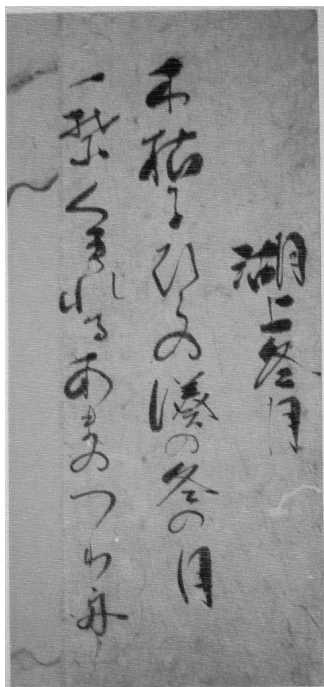 湖上冬月
木枯にひらの湊の冬の月
一葉くもれるあまのつり舟